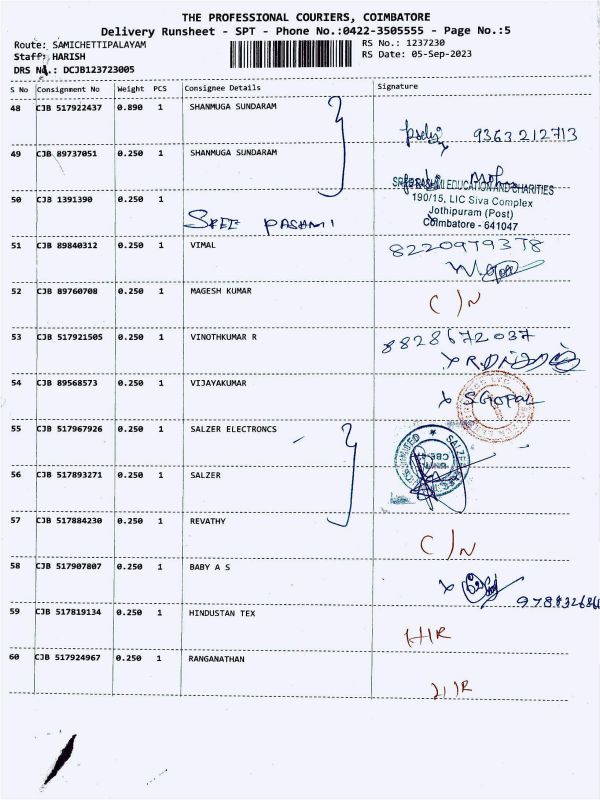 THE PROFESSIONAL COURIERS, COIMBATORE
Delivery Runsheet - SPT - Phone No.:0422-3505555 - Page No.:5
Route: SAMICHETTIPALAYAM
RS No.: 1237230
Staff: HARISH
RS Date: 05-Sep-2023
DRS No.: DCJB123723005
S No Consignment No Weight PCS Consignee Details Signature
48 CJB 517922437 0.890 1 SHANMUGA SUNDARAM
9363212713
49 CJB 89737051 0.250 1 SHANMUGA SUNDARAM
EDUCATION AND CHARITIES
50 CJB 1391390 0.250 1
190/15, LIC Siva Complex
Jothipuram (Post)
SREE RASHMI
Coimbatore - 641047
51 CJB 89840312 0.250 1 VIMAL 8220979378
52 CJB 89760708 0.250 1 MAGESH KUMAR C/N
53 CJB 517921505 0.250 1 VINOTHKUMAR R 8828672037
54 CJB 89568573 0.250 1 VIJAYAKUMAR S GOPAL
55 CJB 517967926 0.250 1 SALZER ELECTRONCS
SALZER
56 CJB 517893271 0.250 1 SALZER
57 CJB 517884230 0.250 1 REVATHY C/N
58 CJB 517907807 0.250 1 BABY A S
59 CJB 517819134 0.250 1 HINDUSTAN TEX
60 CJB 517924967 0.250 1 RANGANATHAN